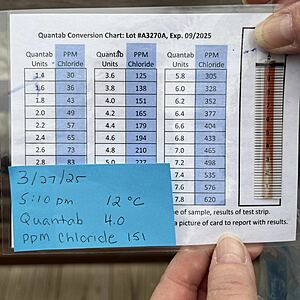 Quantab Conversion Chart: Lot #A3270A, Exp. 09/2025
Quantab Units PPM Chloride Quantab Units PPM Chloride Quantab Units PPM Chloride
1.4 30 3.6 125 5.8 305
1.6 36 3.8 138 6.0 328
1.8 43 4.0 151 6.2 352
2.0 49 4.2 165 6.4 377
2.2 57 4.4 179 6.6 404
2.4 65 4.6 194 6.8 433
2.6 73 4.8 210 7.0 465
2.8 83 5.0 227 7.2 498
7.4 535
7.6 576
7.8 620
3/27/25
5:10 pm 12 °C
Quantab 4.0
ppm Chloride 151
of sample, results of test strip.
a picture of card to report with results.